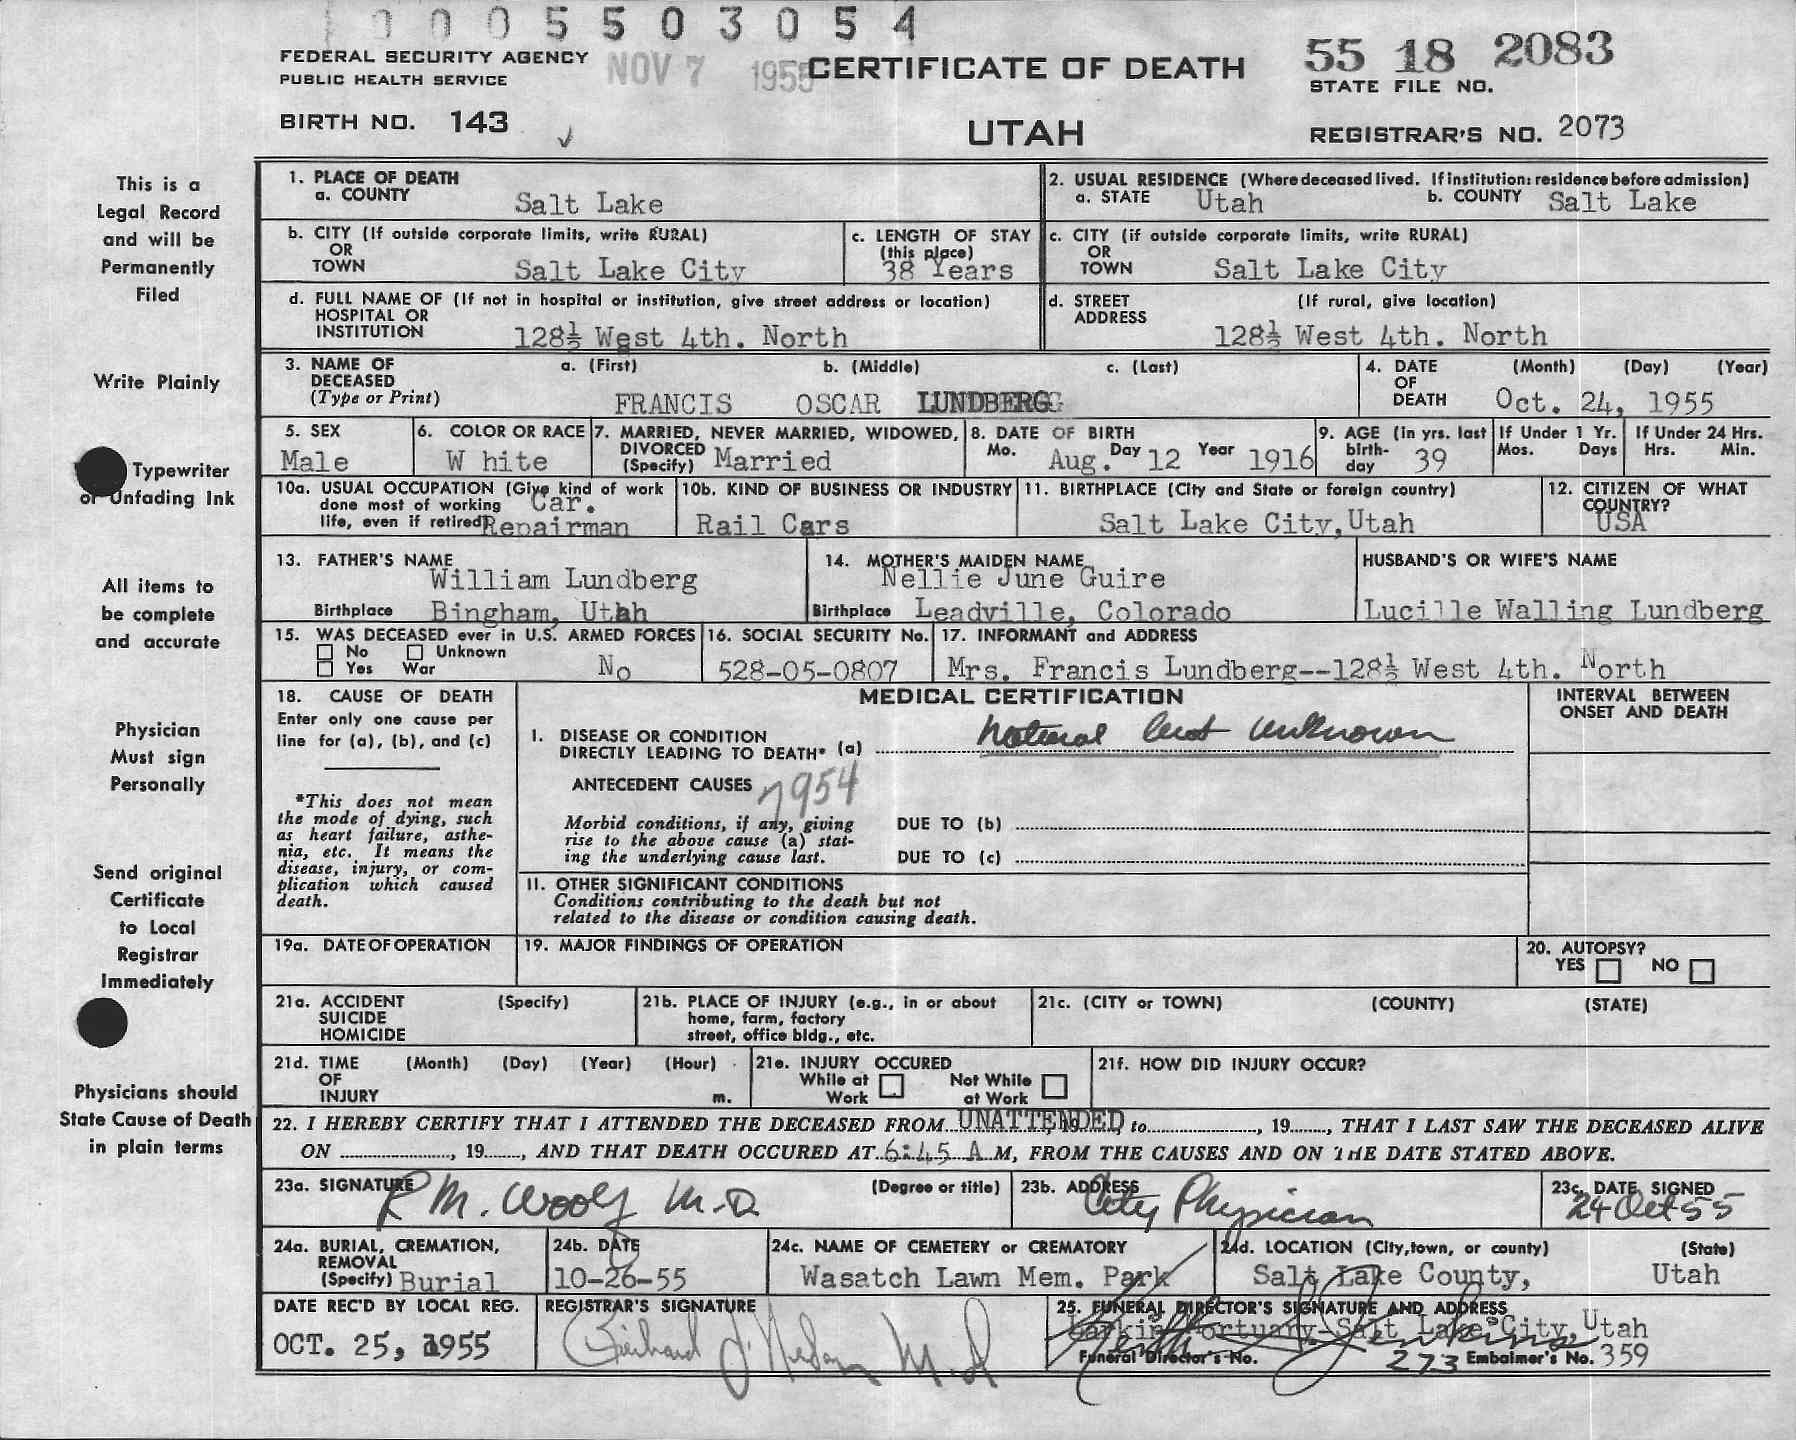 0005503054
FEDERAL SECURITY AGENCY
PUBLIC HEALTH SERVICE
NOV 7 1955
CERTIFICATE OF DEATH
55 18 2083
STATE FILE NO.
BIRTH NO. 143
UTAH
REGISTRAR'S NO. 2073
This is a
Legal Record
and will be
Permanently
Filed
Write Plainly
Typewriter
or Unfading Ink
All items to
be complete
and accurate
Physician
Must sign
Personally
Send original
Certificate
to Local
Registrar
Immediately
Physicians should
State Cause of Death
in plain terms
1. PLACE OF DEATH
a. COUNTY Salt Lake
2. USUAL RESIDENCE (Where deceased lived. If institution: residence before admission)
a. STATE Utah b. COUNTY Salt Lake
b. CITY (If outside corporate limits, write RURAL)
OR
TOWN Salt Lake City
c. LENGTH OF STAY
(this place)
38 Years
c. CITY (if outside corporate limits, write RURAL)
OR
TOWN Salt Lake City
d. FULL NAME OF (If not in hospital or institution, give street address or location)
HOSPITAL OR
INSTITUTION 128½ West 4th. North
d. STREET (If rural, give location)
ADDRESS
128½ West 4th. North
3. NAME OF a. (First) b. (Middle) c. (Last)
DECEASED
(Type or Print) FRANCIS OSCAR LUNDBERG
4. DATE (Month) (Day) (Year)
OF
DEATH Oct. 24, 1955
5. SEX
Male
6. COLOR OR RACE
W hite
7. MARRIED, NEVER MARRIED, WIDOWED,
DIVORCED
(Specify) Married
8. DATE OF BIRTH
Mo. Aug. Day 12 Year 1916
9. AGE (in yrs. last
birth-
day 39
If Under 1 Yr.
Mos. Days
If Under 24 Hrs.
Hrs. Min.
10a. USUAL OCCUPATION (Give kind of work
done most of working Car.
life, even if retired) Repairman
10b. KIND OF BUSINESS OR INDUSTRY
Rail Cars
11. BIRTHPLACE (City and State or foreign country)
Salt Lake City, Utah
12. CITIZEN OF WHAT
COUNTRY?
USA
13. FATHER'S NAME
William Lundberg
Birthplace Bingham, Utah
14. MOTHER'S MAIDEN NAME
Nellie June Guire
Birthplace Leadville, Colorado
HUSBAND'S OR WIFE'S NAME
Lucille Walling Lundberg
15. WAS DECEASED ever in U.S. ARMED FORCES
No Unknown
Yes War No
16. SOCIAL SECURITY No.
528-05-0807
17. INFORMANT and ADDRESS
Mrs. Francis Lundberg--128½ West 4th. North
18. CAUSE OF DEATH
Enter only one cause per
line for (a), (b), and (c)
*This does not mean
the mode of dying, such
as heart failure, asthe-
nia, etc. It means the
disease, injury, or com-
plication which caused
death.
MEDICAL CERTIFICATION
INTERVAL BETWEEN
ONSET AND DEATH
I. DISEASE OR CONDITION
DIRECTLY LEADING TO DEATH* (a) Natural but unknown
ANTECEDENT CAUSES 7954
Morbid conditions, if any, giving
rise to the above cause (a) stat-
ing the underlying cause last.
DUE TO (b)
DUE TO (c)
II. OTHER SIGNIFICANT CONDITIONS
Conditions contributing to the death but not
related to the disease or condition causing death.
19a. DATE OF OPERATION
19. MAJOR FINDINGS OF OPERATION
20. AUTOPSY?
YES NO
21a. ACCIDENT (Specify)
SUICIDE
HOMICIDE
21b. PLACE OF INJURY (e.g., in or about
home, farm, factory
street, office bldg., etc.
21c. (CITY or TOWN) (COUNTY) (STATE)
21d. TIME (Month) (Day) (Year) (Hour)
OF
INJURY m.
21e. INJURY OCCURED
While at Work
Not While at Work
21f. HOW DID INJURY OCCUR?
22. I HEREBY CERTIFY THAT I ATTENDED THE DECEASED FROM UNATTENDED, 19 to , 19 , THAT I LAST SAW THE DECEASED ALIVE
ON , 19 , AND THAT DEATH OCCURED AT 6:45 A M, FROM THE CAUSES AND ON THE DATE STATED ABOVE.
23a. SIGNATURE (Degree or title)
R M. Woolf M.D
23b. ADDRESS
City Physician
23c. DATE SIGNED
24 Oct 55
24a. BURIAL, CREMATION,
REMOVAL
(Specify) Burial
24b. DATE
10-26-55
24c. NAME OF CEMETERY or CREMATORY
Wasatch Lawn Mem. Park
24d. LOCATION (City, town, or county) (State)
Salt Lake County, Utah
DATE REC'D BY LOCAL REG.
OCT. 25, 1955
REGISTRAR'S SIGNATURE
M.D
25. FUNERAL DIRECTOR'S SIGNATURE AND ADDRESS
Larkin Mortuary-Salt Lake City, Utah
Funeral Director's No. 273 Embalmer's No. 359